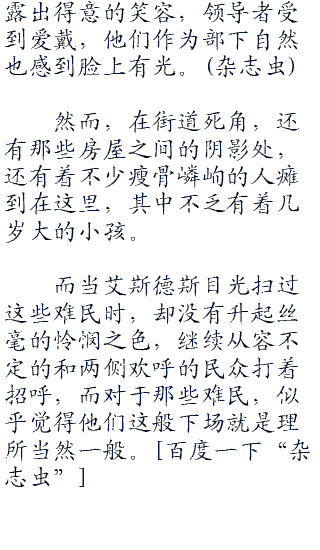 露出得意的笑容，领导者受
到爱戴，他们作为部下自然
也感到脸上有光。(杂志虫)
然而，在街道死角，还
有那些房屋之间的阴影处，
还有着不少瘦骨嶙峋的人瘫
到在这里，其中不乏有着几
岁大的小孩。
而当艾斯德斯目光扫过
这些难民时，却没有升起丝
毫的怜悯之色，继续从容不
定的和两侧欢呼的民众打着
招呼，而对于那些难民，似
乎觉得他们这般下场就是理
所当然一般。[百度一下“杂
志虫”]